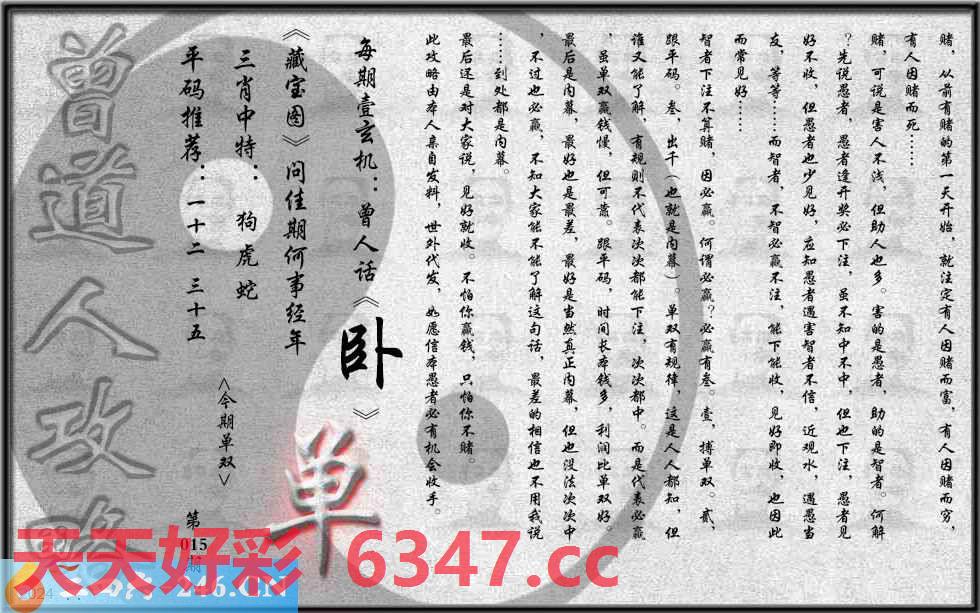 赌，从前有赌的第一天开始，就注定有人因赌而富，有人因赌而穷，
有人因赌而死……
赌，可说是害人不浅，但助人也多。害的是愚者，助的是智者。何解
？先说愚者，愚者逢开奖必下注，虽不知中不中，但也下注，愚者见
好不收，但愚者也少见好，应知愚者遇害智者不信，近观水，遇愚当
友，等等……而智者，不智必赢不注，能下能收，见好即收，也因此
而常见好……
智者下注不算赌，因必赢。何谓必赢？必赢有叁。壹，搏单双。贰，
跟平码。叁，出千（也就是内幕）。单双有规律，这是人人都知，但
谁又能了解，有规则不代表次次都能下注，次次都中。而是代表必赢
，虽单双赢钱慢，但可靠。跟平码，时间长本钱多，利润比单双好。
最后是内幕，最好也是最差，最好是当然真正内幕，但也没法次次中
，不过也必赢，不知大家能不能了解这句话，最差的相信也不用我说
……到处都是内幕。
最后还是对大家说，见好就收。不怕你赢钱，只怕你不赌。
此攻略由本人亲自发料，世外代发，如愿信本愚者必有机会收手。
每期壹玄机：曾人话《卧》
《藏宝图》问佳期何事经年
三肖中特：狗虎蛇
平码推荐：一十二 三十五
<今期单双>
单
第
015
期
曾道人攻略
天天好彩 6347.cc
246.CN